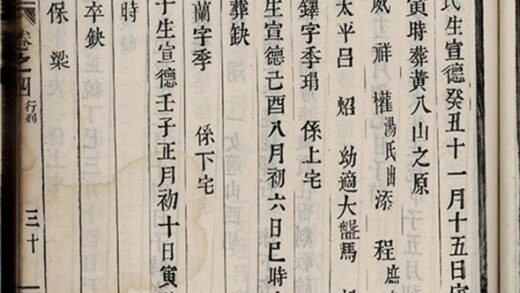 氏生宣德癸丑十一月十五日
寅時葬黃八山之原
威 祥 權 湯氏出 添 程 庶
太平呂 炤 幼適大盤馬
鐸字季琄 係上宅
生宣德己酉八月初六日巳時
葬缺
蘭字季 係下宅
子生宣德壬子正月初十日寅
時
卒缺
保 梁
卷之四 行別 三十